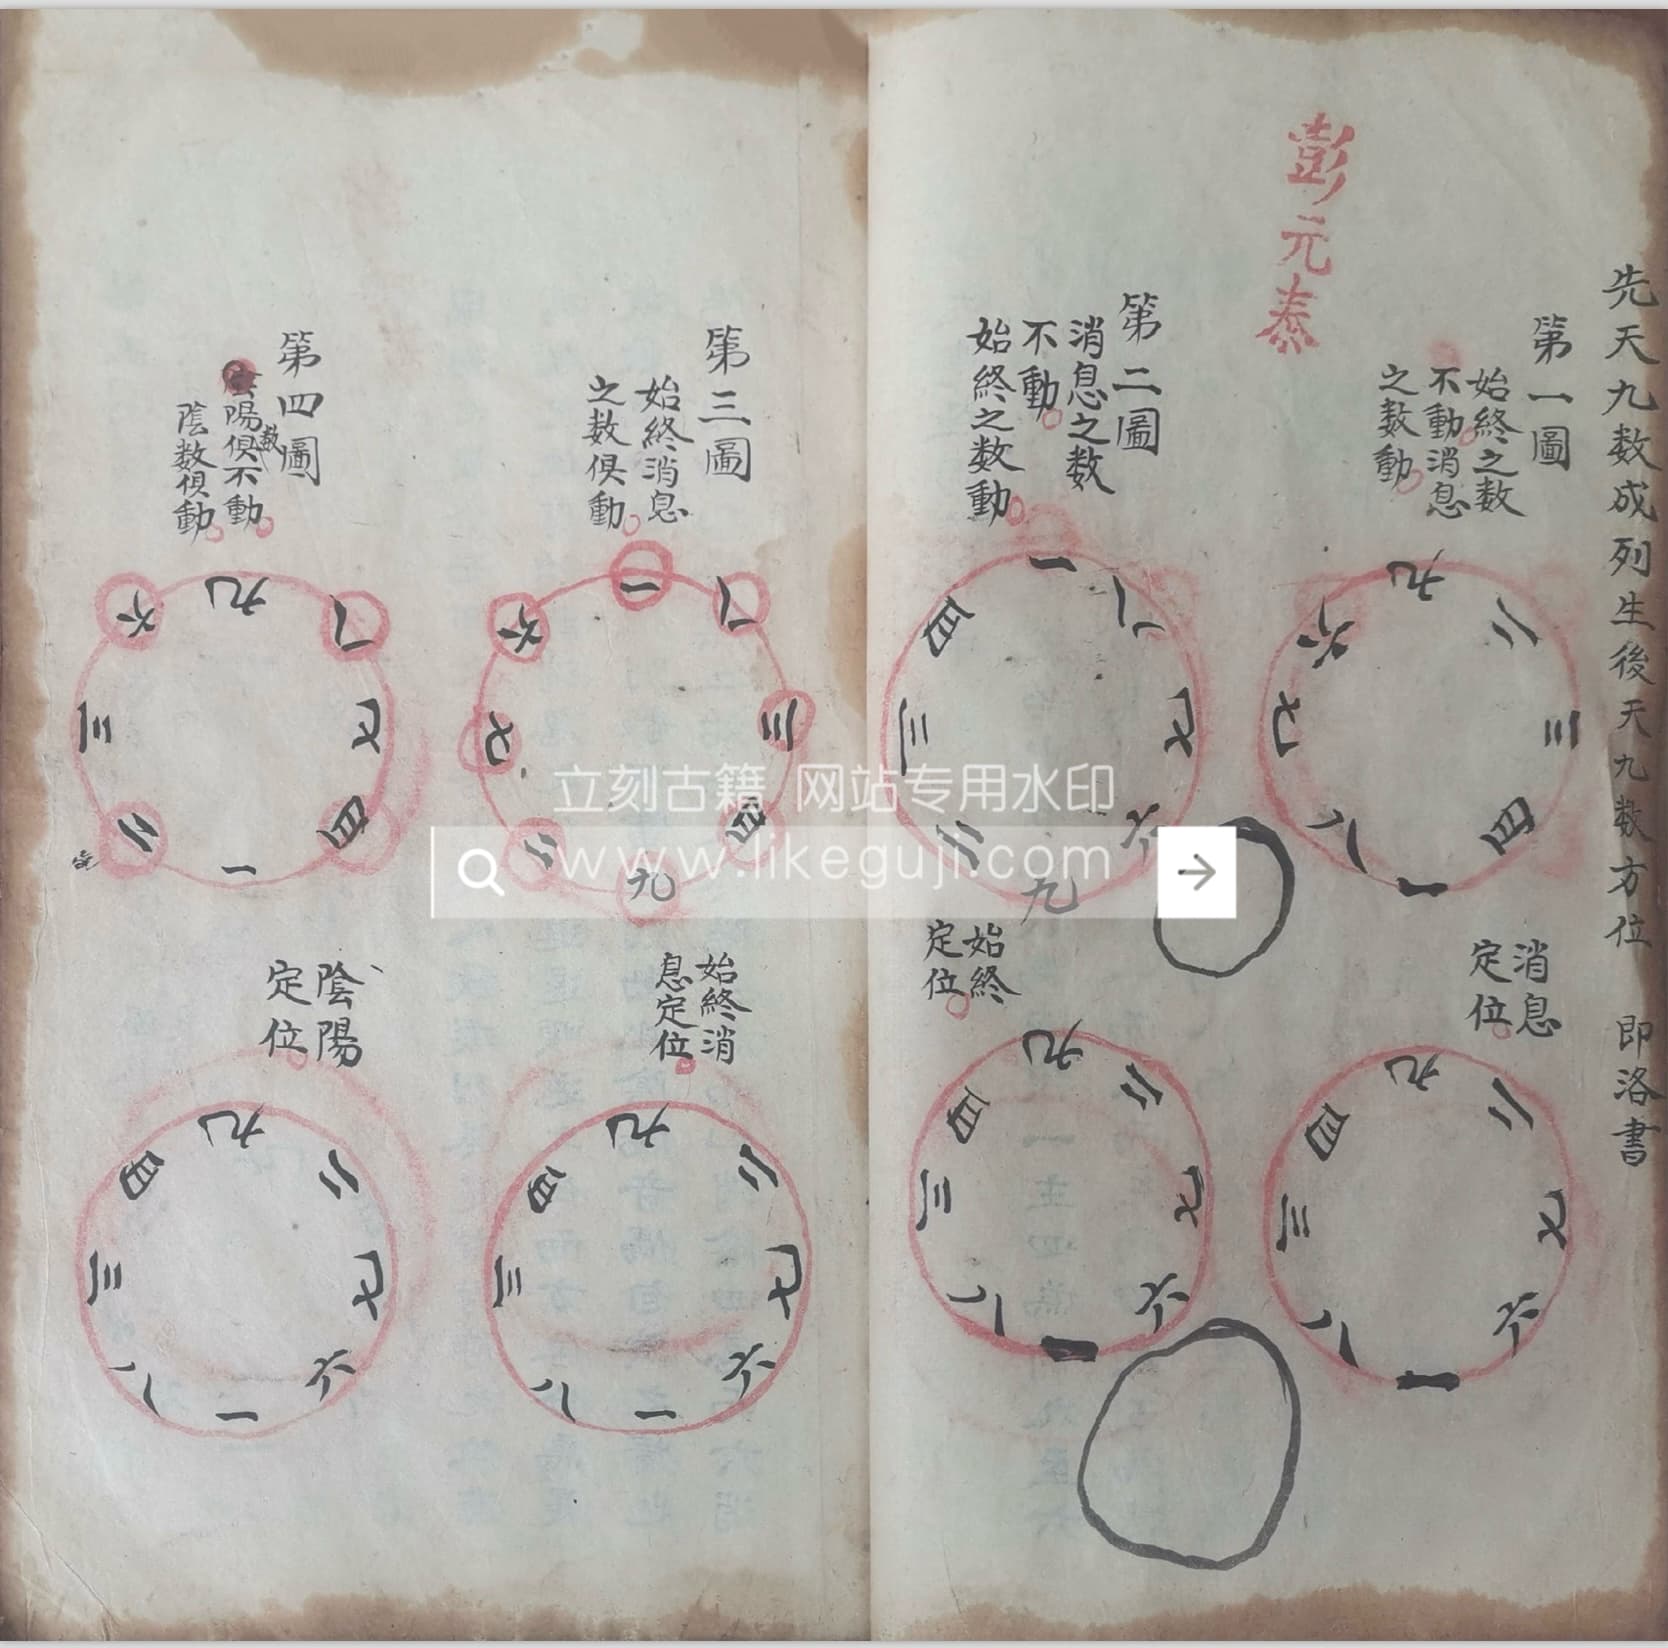 先天九数成列生後天九数方位　即洛書
彭元泰
第一圖
始終之数
不動消息
之数動
九
二
三
四
一
八
七
六
消息
定位
九
二
七
六
一
八
三
四
第二圖
消息之数
不動
始終之数動
一
八
七
六
九
二
三
四
始終
定位
九
二
七
六
一
八
三
四
第三圖
始終消息
之数俱動
一
八
三
四
九
二
七
六
始終消
息定位
九
二
七
六
一
八
三
四
第四圖
陽数俱不動
陰数俱動
九
八
七
四
一
二
三
六
陰陽
定位
九
二
七
六
一
八
三
四
立刻古籍 网站专用水印
www.likeguji.com